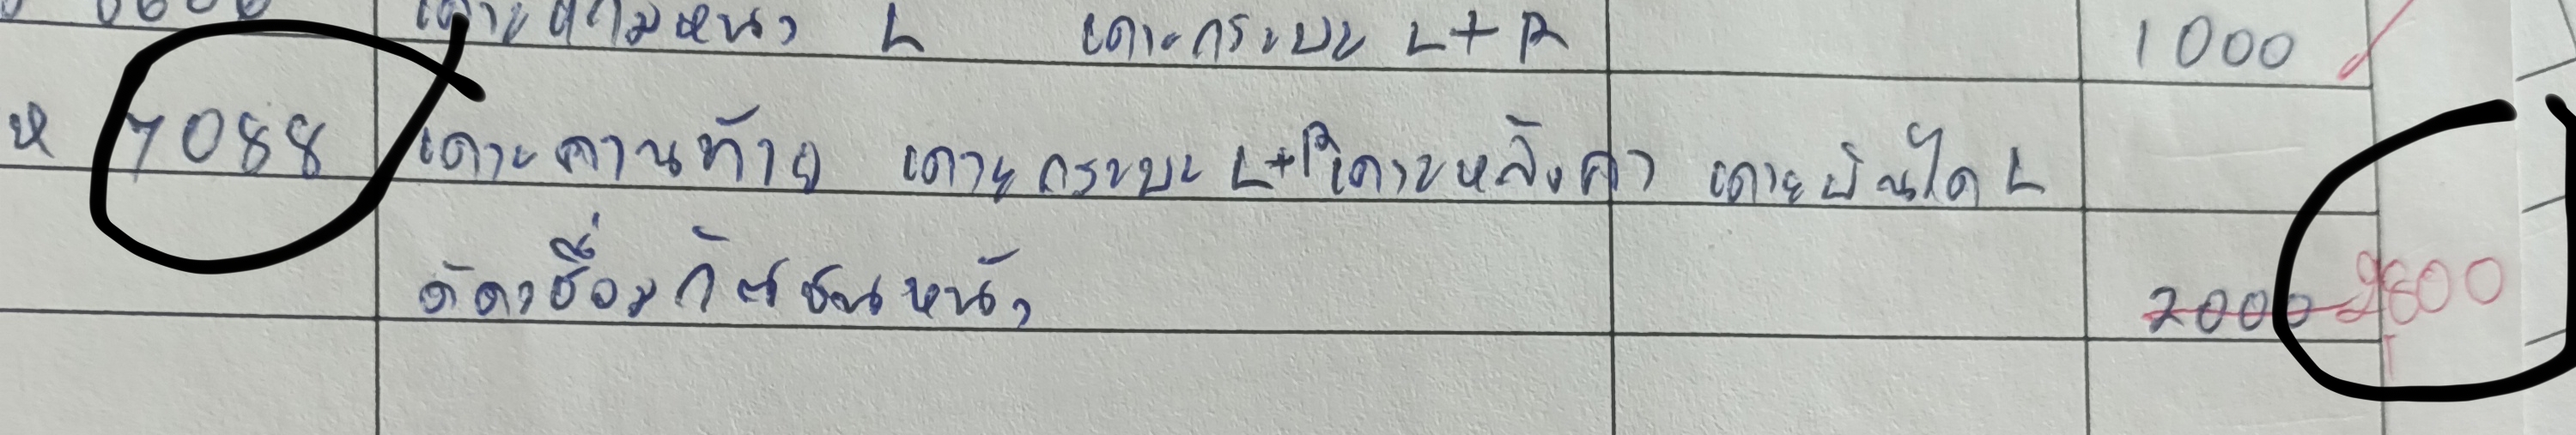 เคาะแก้มหน้า L เคาะกระบะ L+R 1000
ห 7088 เคาะคานท้าย เคาะกระบะ L+R เคาะหลังคา เคาะบันได L
ดัดเชื่อมกันชนหน้า 2000 2800